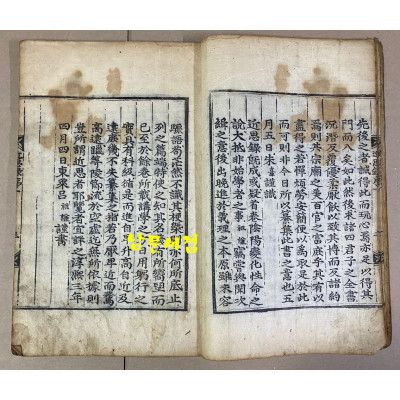 先後之者誠得此而玩心焉亦足以得其
門而入矣如此然後求諸四君子之全書
沈潛反覆優柔厭飫以致其博而反諸約
焉則其宗廟之美百官之富庶乎其有以
盡得之若憚煩勞安簡便以爲取足於此
而可則非今日所以纂集此書之意也五
月五日朱熹謹識
近思錄旣成或疑首卷陰陽變化性命之
說大抵非始學者之事祖謙竊嘗與聞次
緝之意後出晚進於義理之本原雖未容
驟語苟茫然不識其梗槩則亦何所底止
列之篇端特使之知其名義有所嚮望而
已至於餘卷所載講學之方日用躬行之
實具有科級循是而進自卑升高自近及
遠庶幾不失纂集之指若乃厭卑近而騖
高遠躐等陵節流於空虛迄無所依據則
豈所謂近思者耶覽者宜詳之淳熙三年
四月四日東萊呂祖謙謹書
남문서점